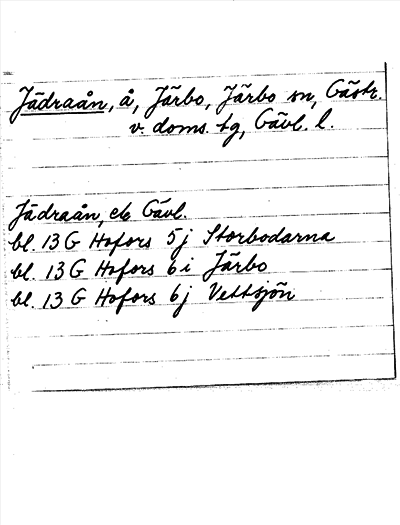 Jädraån, å, Järbo, Järbo sn, Gästr.
v. doms. tg, Gävl. l.
Jädraån, eb Gävl.
bl. 13 G Hofors 5j Storbodarna
bl. 13 G Hofors 6i Järbo
bl. 13 G Hofors 6j Vettsjön